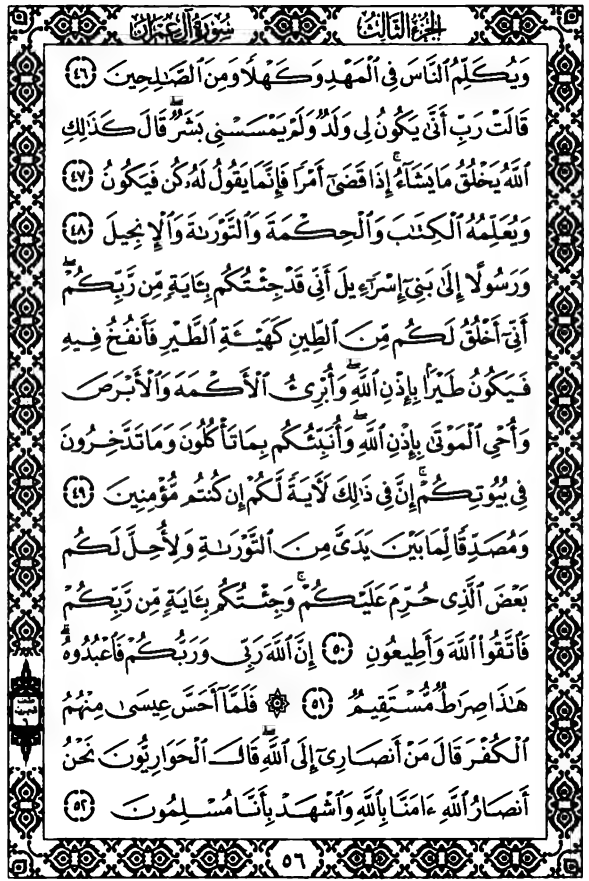 الجزء الثالث سورة آل عمران
وَيُكَلِّمُ ٱلنَّاسَ فِي ٱلْمَهْدِ وَكَهْلًا وَمِنَ ٱلصَّٰلِحِينَ ٤٦
قَالَتْ رَبِّ أَنَّىٰ يَكُونُ لِي وَلَدٌ وَلَمْ يَمْسَسْنِي بَشَرٌۖ قَالَ كَذَٰلِكِ
ٱللَّهُ يَخْلُقُ مَا يَشَآءُۚ إِذَا قَضَىٰٓ أَمْرًا فَإِنَّمَا يَقُولُ لَهُۥ كُن فَيَكُونُ ٤٧
وَيُعَلِّمُهُ ٱلْكِتَٰبَ وَٱلْحِكْمَةَ وَٱلتَّوْرَىٰةَ وَٱلْإِنجِيلَ ٤٨
وَرَسُولًا إِلَىٰ بَنِيٓ إِسْرَٰٓءِيلَ أَنِّي قَدْ جِئْتُكُم بِـَٔايَةٍ مِّن رَّبِّكُمْۖ
أَنِّيٓ أَخْلُقُ لَكُم مِّنَ ٱلطِّينِ كَهَيْـَٔةِ ٱلطَّيْرِ فَأَنفُخُ فِيهِ
فَيَكُونُ طَيْرًۢا بِإِذْنِ ٱللَّهِۖ وَأُبْرِئُ ٱلْأَكْمَهَ وَٱلْأَبْرَصَ
وَأُحْيِ ٱلْمَوْتَىٰ بِإِذْنِ ٱللَّهِۖ وَأُنَبِّئُكُم بِمَا تَأْكُلُونَ وَمَا تَدَّخِرُونَ
فِي بُيُوتِكُمْۚ إِنَّ فِي ذَٰلِكَ لَـَٔايَةً لَّكُمْ إِن كُنتُم مُّؤْمِنِينَ ٤٩
وَمُصَدِّقًا لِّمَا بَيْنَ يَدَيَّ مِنَ ٱلتَّوْرَىٰةِ وَلِأُحِلَّ لَكُم
بَعْضَ ٱلَّذِي حُرِّمَ عَلَيْكُمْۚ وَجِئْتُكُم بِـَٔايَةٍ مِّن رَّبِّكُمْ
فَٱتَّقُوا۟ ٱللَّهَ وَأَطِيعُونِ ٥٠ إِنَّ ٱللَّهَ رَبِّي وَرَبُّكُمْ فَٱعْبُدُوهُۗ
هَٰذَا صِرَٰطٌ مُّسْتَقِيمٌ ٥١ ۞ فَلَمَّآ أَحَسَّ عِيسَىٰ مِنْهُمُ
ٱلْكُفْرَ قَالَ مَنْ أَنصَارِيٓ إِلَى ٱللَّهِۖ قَالَ ٱلْحَوَارِيُّونَ نَحْنُ
أَنصَارُ ٱللَّهِ ءَامَنَّا بِٱللَّهِ وَٱشْهَدْ بِأَنَّا مُسْلِمُونَ ٥٢
٥٦